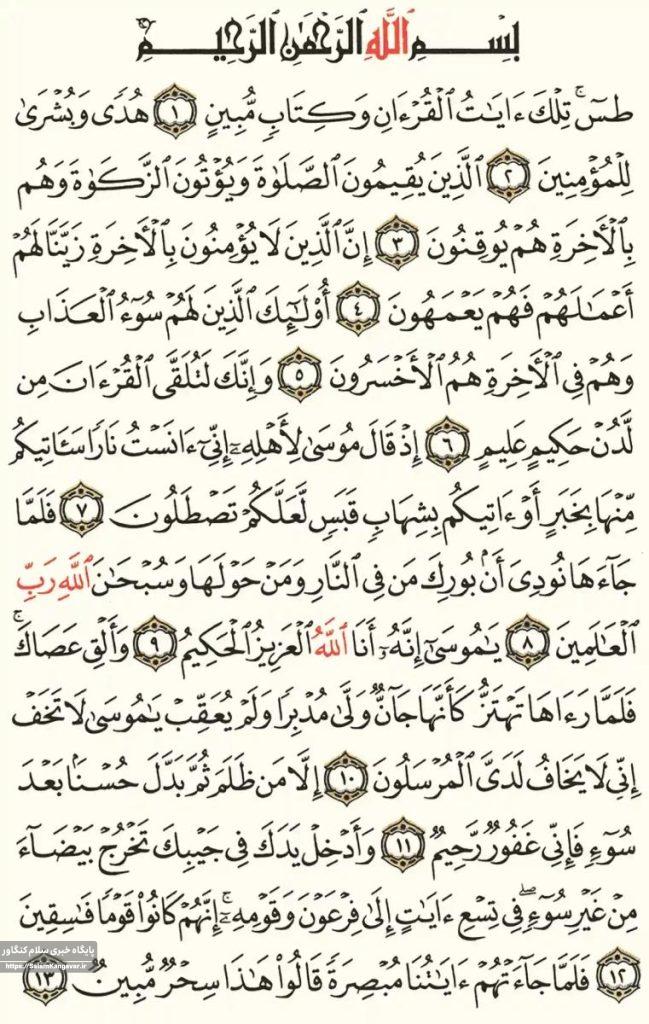 بِسْمِ ٱللَّهِ ٱلرَّحْمَٰنِ ٱلرَّحِيمِ
طسٓ ۚ تِلْكَ ءَايَٰتُ ٱلْقُرْءَانِ وَكِتَابٍ مُّبِينٍ ١ هُدًى وَبُشْرَىٰ
لِلْمُؤْمِنِينَ ٢ ٱلَّذِينَ يُقِيمُونَ ٱلصَّلَوٰةَ وَيُؤْتُونَ ٱلزَّكَوٰةَ وَهُم
بِٱلْأَخِرَةِ هُمْ يُوقِنُونَ ٣ إِنَّ ٱلَّذِينَ لَا يُؤْمِنُونَ بِٱلْأَخِرَةِ زَيَّنَّا لَهُمْ
أَعْمَٰلَهُمْ فَهُمْ يَعْمَهُونَ ٤ أُوْلَٰٓئِكَ ٱلَّذِينَ لَهُمْ سُوٓءُ ٱلْعَذَابِ
وَهُمْ فِي ٱلْأَخِرَةِ هُمُ ٱلْأَخْسَرُونَ ٥ وَإِنَّكَ لَتُلَقَّى ٱلْقُرْءَانَ مِن
لَّدُنْ حَكِيمٍ عَلِيمٍ ٦ إِذْ قَالَ مُوسَىٰ لِأَهْلِهِۦٓ إِنِّيٓ ءَانَسْتُ نَارًا سَـَٔاتِيكُم
مِّنْهَا بِخَبَرٍ أَوْ ءَاتِيكُم بِشِهَابٍ قَبَسٍ لَّعَلَّكُمْ تَصْطَلُونَ ٧ فَلَمَّا
جَآءَهَا نُودِيَ أَنۢ بُورِكَ مَن فِي ٱلنَّارِ وَمَنْ حَوْلَهَا وَسُبْحَٰنَ ٱللَّهِ رَبِّ
ٱلْعَٰلَمِينَ ٨ يَٰمُوسَىٰٓ إِنَّهُۥٓ أَنَا ٱللَّهُ ٱلْعَزِيزُ ٱلْحَكِيمُ ٩ وَأَلْقِ عَصَاكَ ۚ
فَلَمَّا رَءَاهَا تَهْتَزُّ كَأَنَّهَا جَآنٌّ وَلَّىٰ مُدْبِرًا وَلَمْ يُعَقِّبْ ۚ يَٰمُوسَىٰ لَا تَخَفْ
إِنِّي لَا يَخَافُ لَدَيَّ ٱلْمُرْسَلُونَ ١٠ إِلَّا مَن ظَلَمَ ثُمَّ بَدَّلَ حُسْنًۢا بَعْدَ
سُوٓءٍ فَإِنِّي غَفُورٌ رَّحِيمٌ ١١ وَأَدْخِلْ يَدَكَ فِي جَيْبِكَ تَخْرُجْ بَيْضَآءَ
مِنْ غَيْرِ سُوٓءٍ ۖ فِي تِسْعِ ءَايَٰتٍ إِلَىٰ فِرْعَوْنَ وَقَوْمِهِۦٓ ۚ إِنَّهُمْ كَانُوا۟ قَوْمًا فَٰسِقِينَ
١٢ فَلَمَّا جَآءَتْهُمْ ءَايَٰتُنَا مُبْصِرَةً قَالُوا۟ هَٰذَا سِحْرٌ مُّبِينٌ ١٣
پایگاه خبری سلام کنگاور
https://SalamKangavar.ir